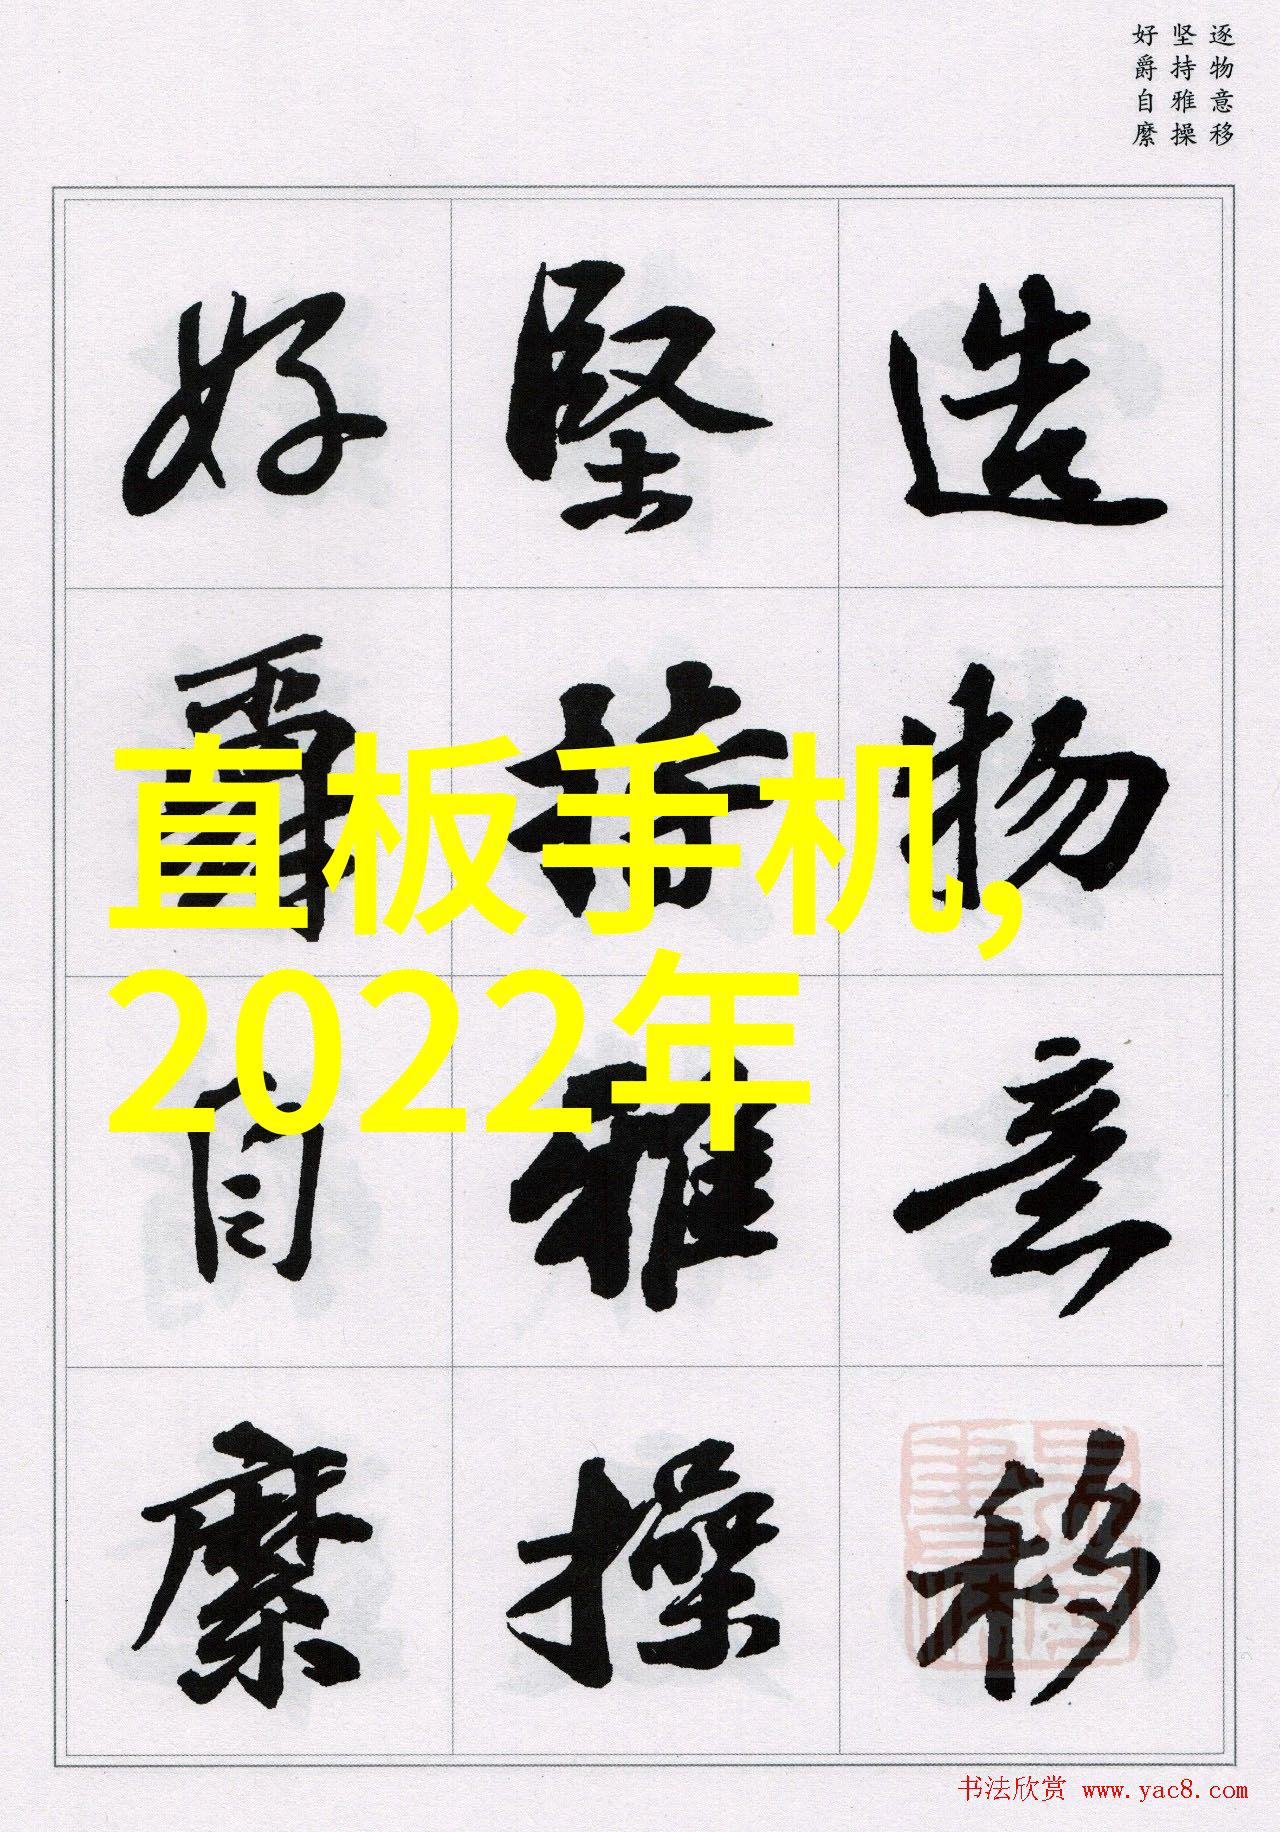 逐物意移
坚持雅操
好爵自縻
造物意移
堅持雅操
好爵自縻
直板手机,
2022年
书法欣赏 www.yac8.com